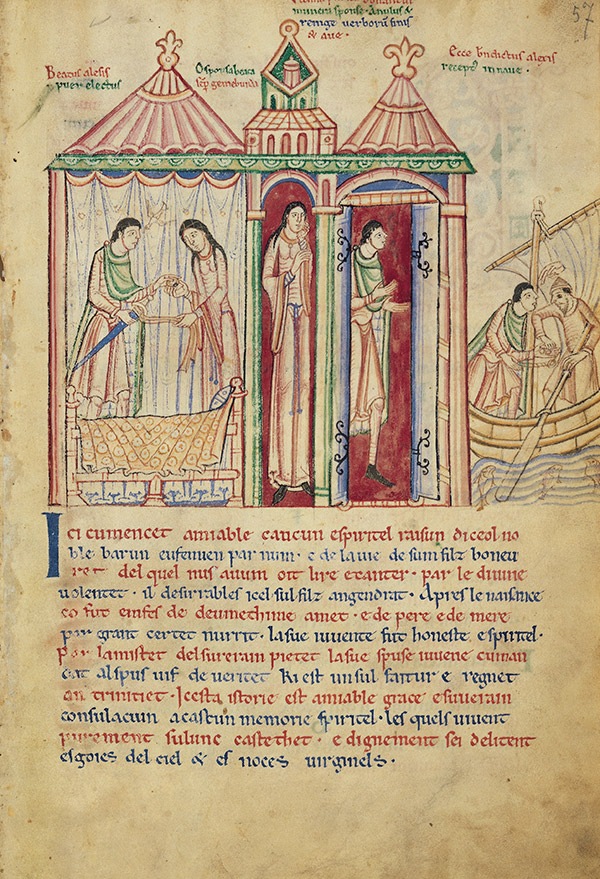 57
muneri sponse. Anulus &
renige verborum finis
& ave.
Beatus alexis
puer electus
O sponsa beata
semper gemebunda
Ecce benedictus alexis
receptus in nave.
Ici cumencet amiable cancun espiritel raisun diceol no
ble barun eufemien par num. e de la vie de sum filz boneu
ret del quel nus avum oit lire e canter. par le divine
volentet. il desirrables icel sul filz angendrat. Apres le naisance
co fut emfes de deu methime amet. e de pere e de mere
par grant certet nurrit. la sue iuvente fut honeste e spiritel.
Par lamistet del surerain pietet la sue spuse iuvene cuman
dat al spus vif de veritet Ki est un sul faitur e regnet
an trinitiet. Icesta istorie est amiable grace e suverain
consulaciun a cascun memorie spiritel. les quels vivent
purement sulunc castethet. e dignement sei delitent
es goies del ciel & es noces virginels.